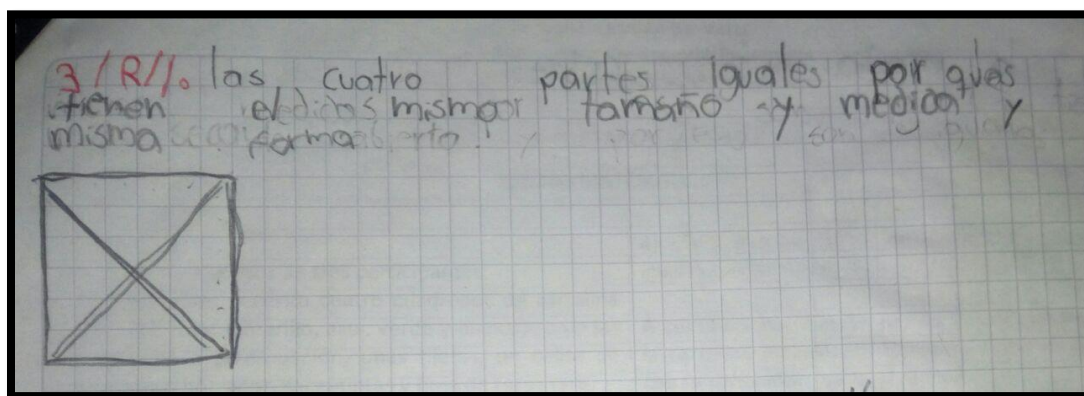 3/R//. las cuatro partes iguales por que
tienen el mismo tamaño y medida y
misma forma